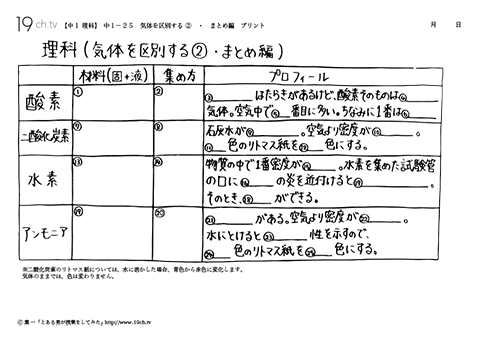 19ch.tv 【中1理科】 中1-25 気体を区別する② ・ まとめ編 プリント 月 日
理科(気体を区別する②・まとめ編)
材料(固+液) 集め方 プロフィール
酸素 ① ② ③ はたらきがあるけど、酸素そのものは④
気体。空気中で⑤ 番目に多い。ちなみに1番は⑥
二酸化炭素 ⑦ ⑧ 石灰水が⑨ 。空気より密度が⑩ 。
⑪ 色のリトマス紙を⑫ 色にする。
水素 ⑬ ⑭ 物質の中で1番密度が⑮ 。水素を集めた試験管
の口に⑯ の炎を近付けると⑰ 。
そのとき、⑱ ができる。
アンモニア ⑲ ⑳ ㉑ がある。空気より密度が㉒ 。
水にとけると㉓ 性を示すので、
㉔ 色のリトマス紙を㉕ 色にする。
※二酸化炭素のリトマス紙については、水に溶かした場合、青色から赤色に変化します。
気体のままでは、色は変わりません。
Ⓒ 葉一「とある男が授業をしてみた」http://www.19ch.tv